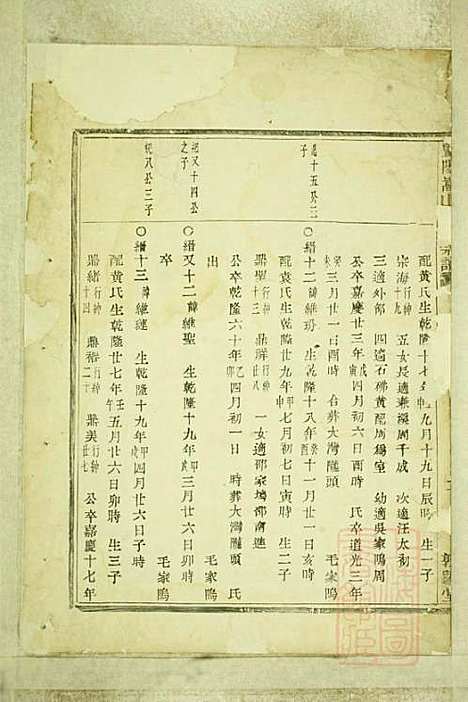 配黃氏生乾隆十七年 九月十九日辰時 生一子
宗海行神十九 五女長適兼溪周千成 次適汪太初
三適外郃 四適石佛黃配周楊室 幼適吳家隖周
公卒嘉慶廿三年戊寅四月初六日酉時 氏卒道光三年
癸 三月廿一日酉時 合葬大灣隴頭 毛家隖
昆十五公二子
〇縉十二諱維玢 生乾隆十八年癸 十一月廿一日亥時
配袁氏生乾隆廿九年甲申七月初七日寅時 生二子
鼎聖行神十三 鼎群行神廿八 一女適郦家塢郦俞連
公卒乾隆六十年乙卯四月初一日 時葬大灣隴頭 氏
出 毛家隖
又十四公之子
〇縉又十二諱維聖 生乾隆十九年甲 三月廿六日卯時
卒 毛家隖
八公三子
〇縉十三諱維縺 生乾隆十九年甲戌四月廿六日子時
配黃氏生乾隆廿七年壬午五月廿六日卯時 生三子
鼎緒行神十四 鼎裕行神二十 鼎美行神廿七 公卒嘉慶十七年